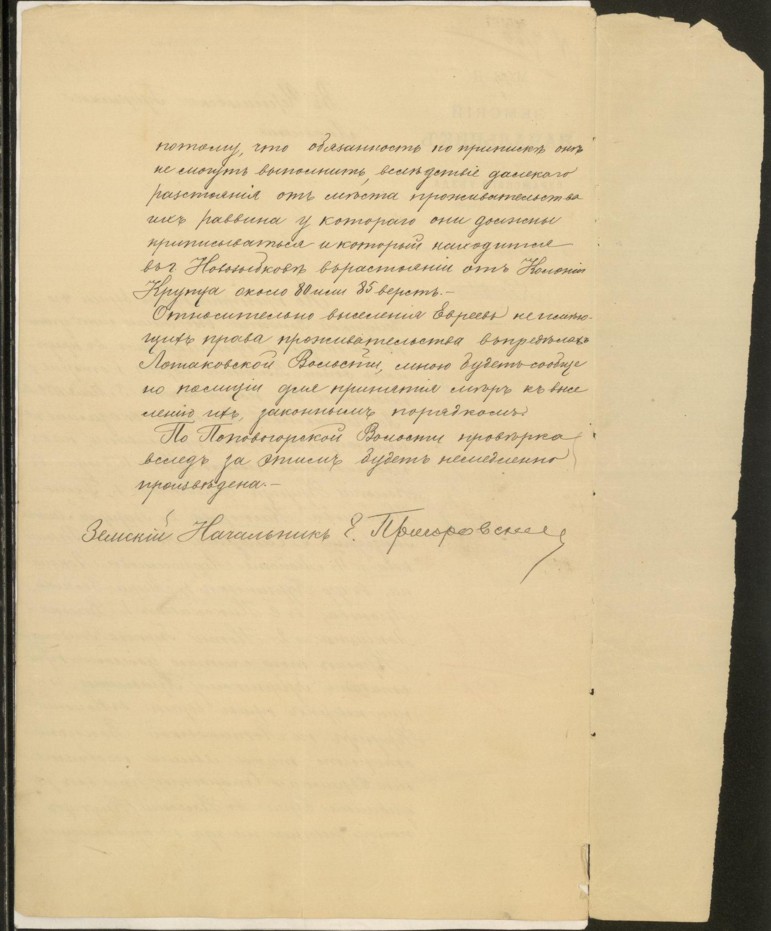 потому, что обязанность по припискѣ онѣ
не могутъ выполнить, вслѣдствіе далекого
разстоянія отъ мѣста проживательства
ихъ раввина у котораго они должны
приписываться и который находится
въ г Новозыбковѣ въ растояніи отъ Колоніи
Крупца около 80 или 85 верстъ.—
Относительно выселенія Евреевъ не имѣю-
щихъ права проживательства въ предѣлахъ
Лотаковской Волости, мною будетъ сообще
но полиціи для принятія мѣръ къ высе
ленію ихъ, законнымъ порядкомъ.
По Поповогорской Волости провѣрка
вслѣдъ за этимъ будетъ немедленно
произведена.—
Земскій Начальникъ Е.